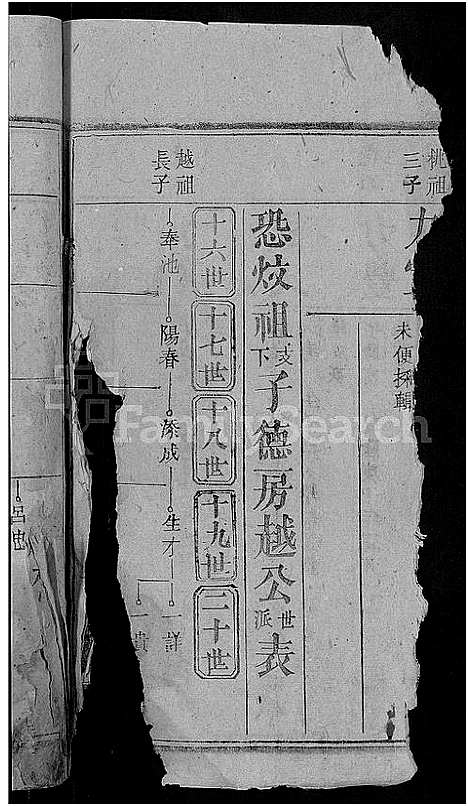 桃祖
三子
未便採輯
恐烗祖支下子德房越公世派表
十六世 十七世 十八世 十九世 二十世
越祖
長子
奉池 陽春 榤成 生才 一詳
一貴
呂池
FamilySearch